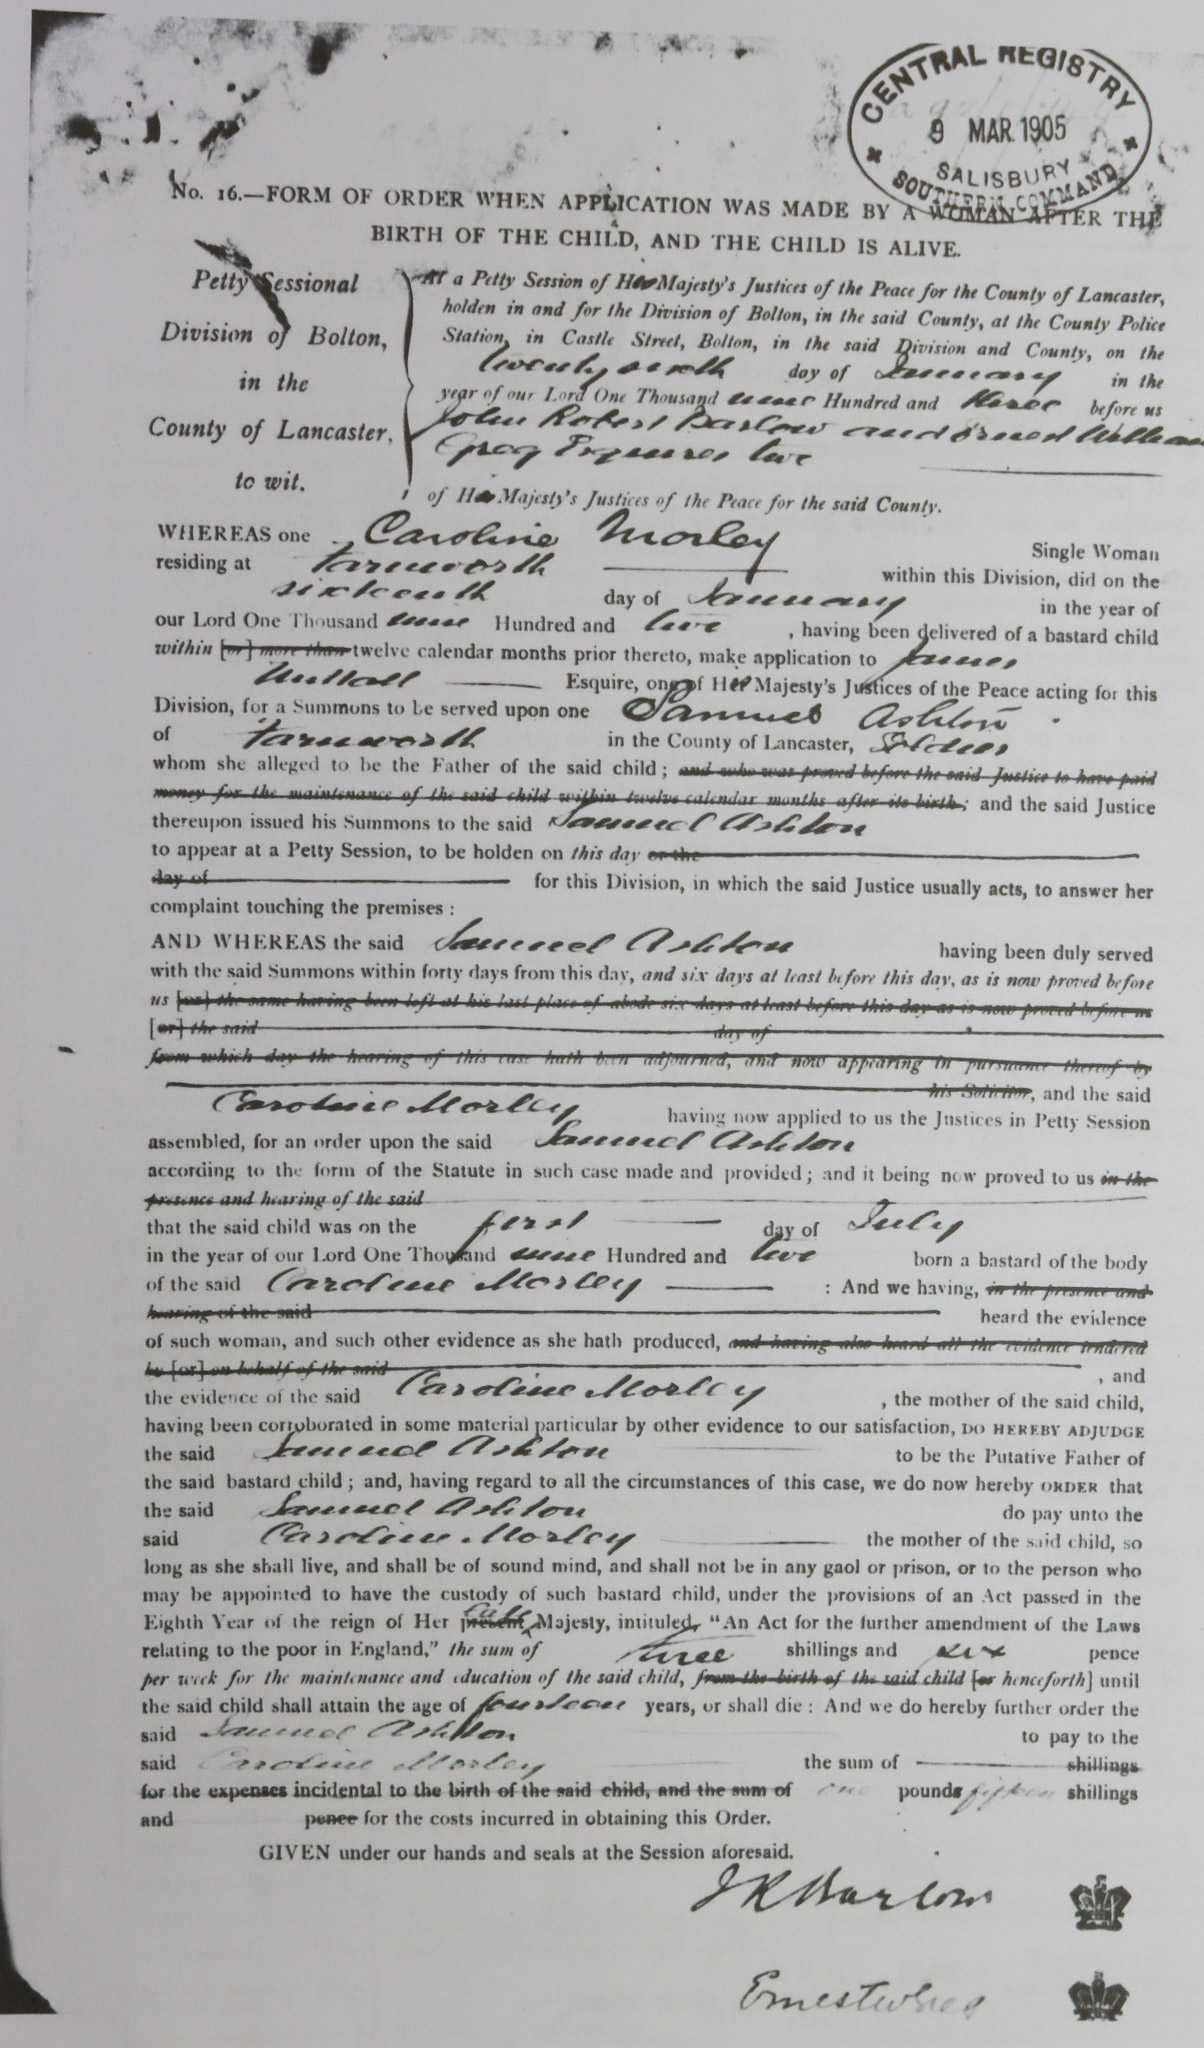 CENTRAL REGISTRY
9 MAR. 1905
SALISBURY
SOUTHERN COMMAND
No. 16.—FORM OF ORDER WHEN APPLICATION WAS MADE BY A WOMAN AFTER THE
BIRTH OF THE CHILD, AND THE CHILD IS ALIVE.
Petty Sessional
Division of Bolton,
in the
County of Lancaster,
to wit.
At a Petty Session of His Majesty's Justices of the Peace for the County of Lancaster,
holden in and for the Division of Bolton, in the said County, at the County Police
Station, in Castle Street, Bolton, in the said Division and County, on the
twenty sixth day of January in the
year of our Lord One Thousand nine Hundred and three before us
John Robert Barlow and Ernest William
Greg Esquires two
of His Majesty's Justices of the Peace for the said County.
WHEREAS one Caroline Morley Single Woman
residing at Farnworth within this Division, did on the
sixteenth day of January in the year of
our Lord One Thousand nine Hundred and two, having been delivered of a bastard child
within [or] more than twelve calendar months prior thereto, make application to James
Nuttall Esquire, one of His Majesty's Justices of the Peace acting for this
Division, for a Summons to be served upon one Samuel Ashton.
of Farnworth in the County of Lancaster, Soldier
whom she alleged to be the Father of the said child; and who was proved before the said Justice to have paid
money for the maintenance of the said child within twelve calendar months after its birth; and the said Justice
thereupon issued his Summons to the said Samuel Ashton
to appear at a Petty Session, to be holden on this day or the
day of for this Division, in which the said Justice usually acts, to answer her
complaint touching the premises:
AND WHEREAS the said Samuel Ashton having been duly served
with the said Summons within forty days from this day, and six days at least before this day, as is now proved before
us [or] the same having been left at his last place of abode six days at least before this day as is now proved before us
[or] the said day of
from which day the hearing of this case hath been adjourned, and now appearing in pursuance thereof by
his Solicitor, and the said
Caroline Morley having now applied to us the Justices in Petty Session
assembled, for an order upon the said Samuel Ashton
according to the form of the Statute in such case made and provided; and it being now proved to us in the
presence and hearing of the said
that the said child was on the first day of July
in the year of our Lord One Thousand nine Hundred and two born a bastard of the body
of the said Caroline Morley : And we having, in the presence and
hearing of the said heard the evidence
of such woman, and such other evidence as she hath produced, and having also heard all the evidence tendered
by [or] on behalf of the said , and
the evidence of the said Caroline Morley, the mother of the said child,
having been corroborated in some material particular by other evidence to our satisfaction, DO HEREBY ADJUDGE
the said Samuel Ashton to be the Putative Father of
the said bastard child; and, having regard to all the circumstances of this case, we do now hereby ORDER that
the said Samuel Ashton do pay unto the
said Caroline Morley the mother of the said child, so
long as she shall live, and shall be of sound mind, and shall not be in any gaol or prison, or to the person who
may be appointed to have the custody of such bastard child, under the provisions of an Act passed in the
Eighth Year of the reign of Her present late Majesty, intituled, "An Act for the further amendment of the Laws
relating to the poor in England," the sum of three shillings and six pence
per week for the maintenance and education of the said child, from the birth of the said child [or henceforth] until
the said child shall attain the age of fourteen years, or shall die: And we do hereby further order the
said Samuel Ashton to pay to the
said Caroline Morley the sum of shillings
for the expenses incidental to the birth of the said child, and the sum of one pounds fifteen shillings
and pence for the costs incurred in obtaining this Order.
GIVEN under our hands and seals at the Session aforesaid.
J R Barlow
Ernest W Greg